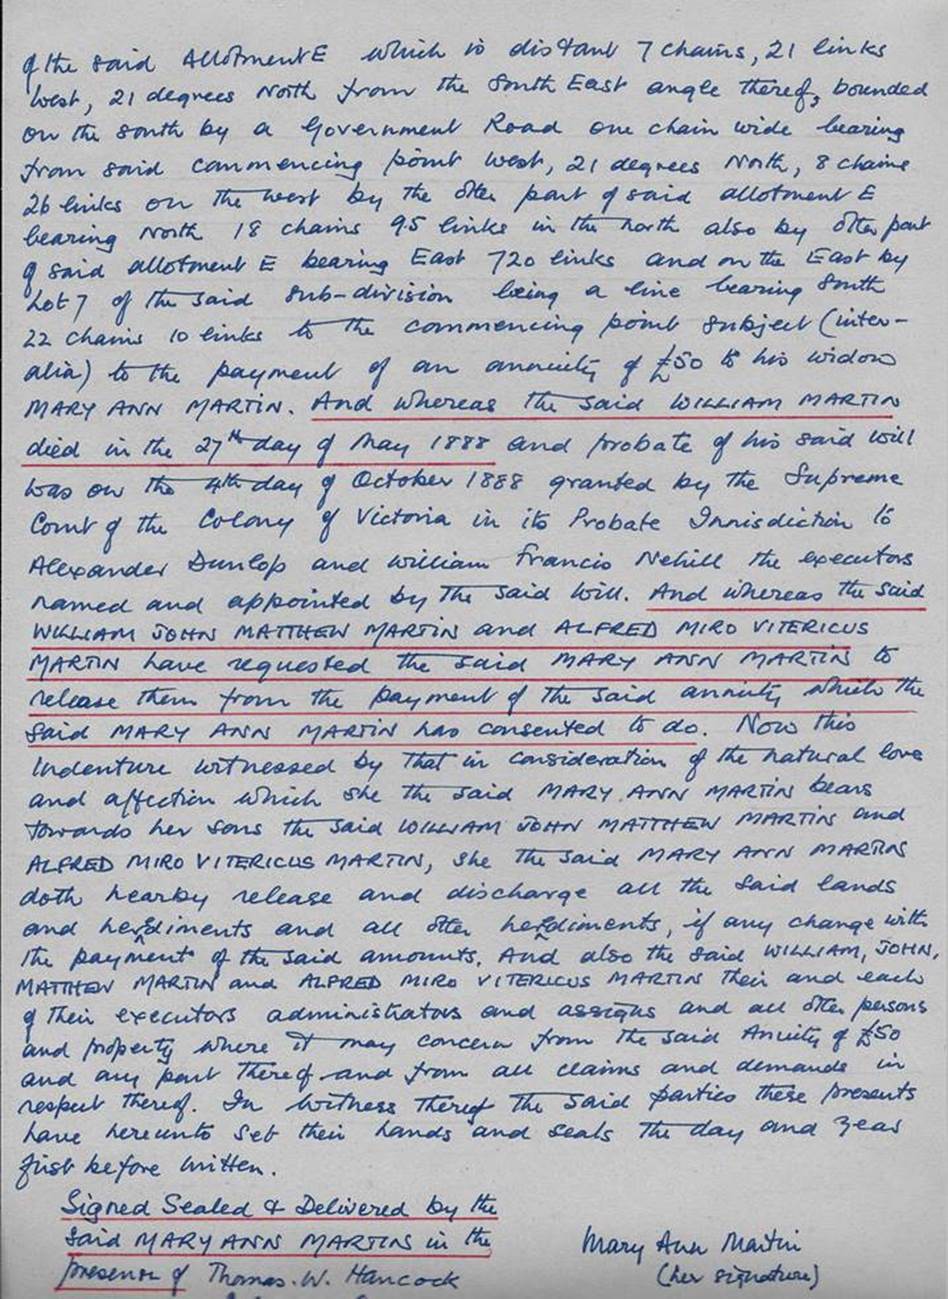 of the said Allotment E which is distant 7 chains, 21 links
West, 21 degrees North from the South East angle thereof, bounded
on the south by a Government Road one chain wide bearing
from said commencing point West, 21 degrees North, 8 chains
26 links on the west by the other part of said allotment E
bearing North 18 chains 95 links in the north also by other part
of said allotment E bearing East 720 links and on the East by
Lot 7 of the said sub-division being a line bearing South
22 chains 10 links to the commencing point subject (inter-
alia) to the payment of an annuity of £50 to his widow
MARY ANN MARTIN. And whereas the said WILLIAM MARTIN
died in the 27th day of May 1888 and probate of his said will
was on the 4th day of October 1888 granted by the Supreme
Court of the Colony of Victoria in its Probate Jurisdiction to
Alexander Dunlop and William Francis Nehill the executors
named and appointed by the said Will. And whereas the said
WILLIAM JOHN MATTHEW MARTIN and ALFRED MIRO VITERICUS
MARTIN have requested the said MARY ANN MARTIN to
release them from the payment of the said annuity which the
said MARY ANN MARTIN has consented to do. Now this
Indenture witnessed by that in consideration of the natural love
and affection which she the said MARY ANN MARTIN bears
towards her sons the said WILLIAM JOHN MATTHEW MARTIN and
ALFRED MIRO VITERICUS MARTIN, she the said MARY ANN MARTIN
doth hearby release and discharge all the said lands
and and all other if any change with
the payments of the said amounts. And also the said WILLIAM, JOHN,
MATTHEW MARTIN and ALFRED MIRO VITERICUS MARTIN their and each
of their executors administrators and assigns and all other persons
and property where it may concern from the said Anuity of £50
and any part thereof and from all claims and demands in
respect thereof. In Witness thereof the said parties these presents
have hereunto set their hands and seals the day and year
first before written.
Signed Sealed & Delivered by the
said MARY ANN MARTIN in the
presence of Thomas. W. Hancock
Mary Ann Martin
(her signature)